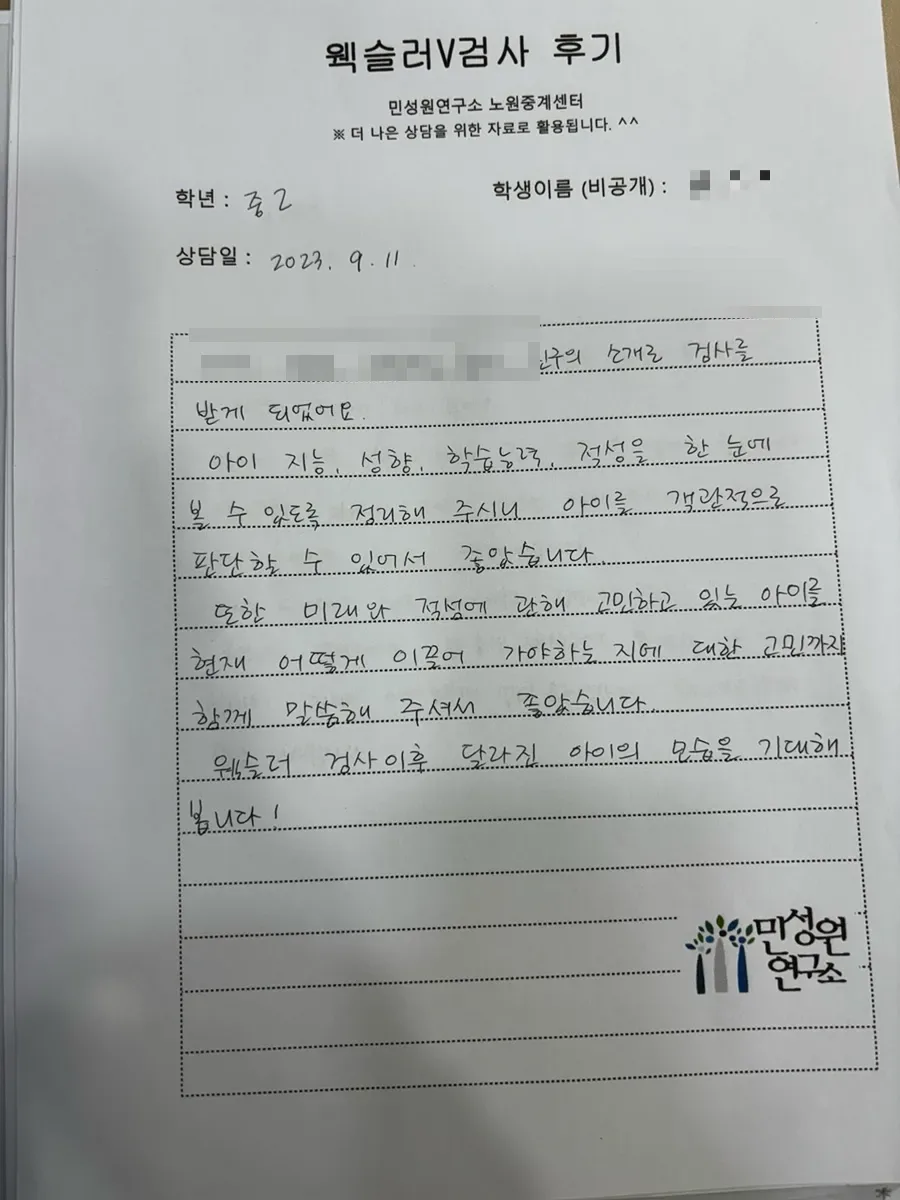 웩슬러V검사 후기
민성원연구소 노원중계센터
※ 더 나은 상담을 위한 자료로 활용됩니다. ^^
학년 : 중2
학생이름 (비공개) :
상담일 : 2023. 9. 11.
친구의 소개로 검사를
받게 되었어요.
아이 지능, 성향, 학습능력, 적성을 한 눈에
볼 수 있도록 정리해 주시니 아이를 객관적으로
판단할 수 있어서 좋았습니다.
또한 미래와 적성에 관해 고민하고 있는 아이를
현재 어떻게 이끌어 가야하는 지에 대한 고민까지
함께 말씀해 주셔서 좋았습니다.
웩슬러 검사이후 달라진 아이의 모습을 기대해
봅니다!
민성원
연구소